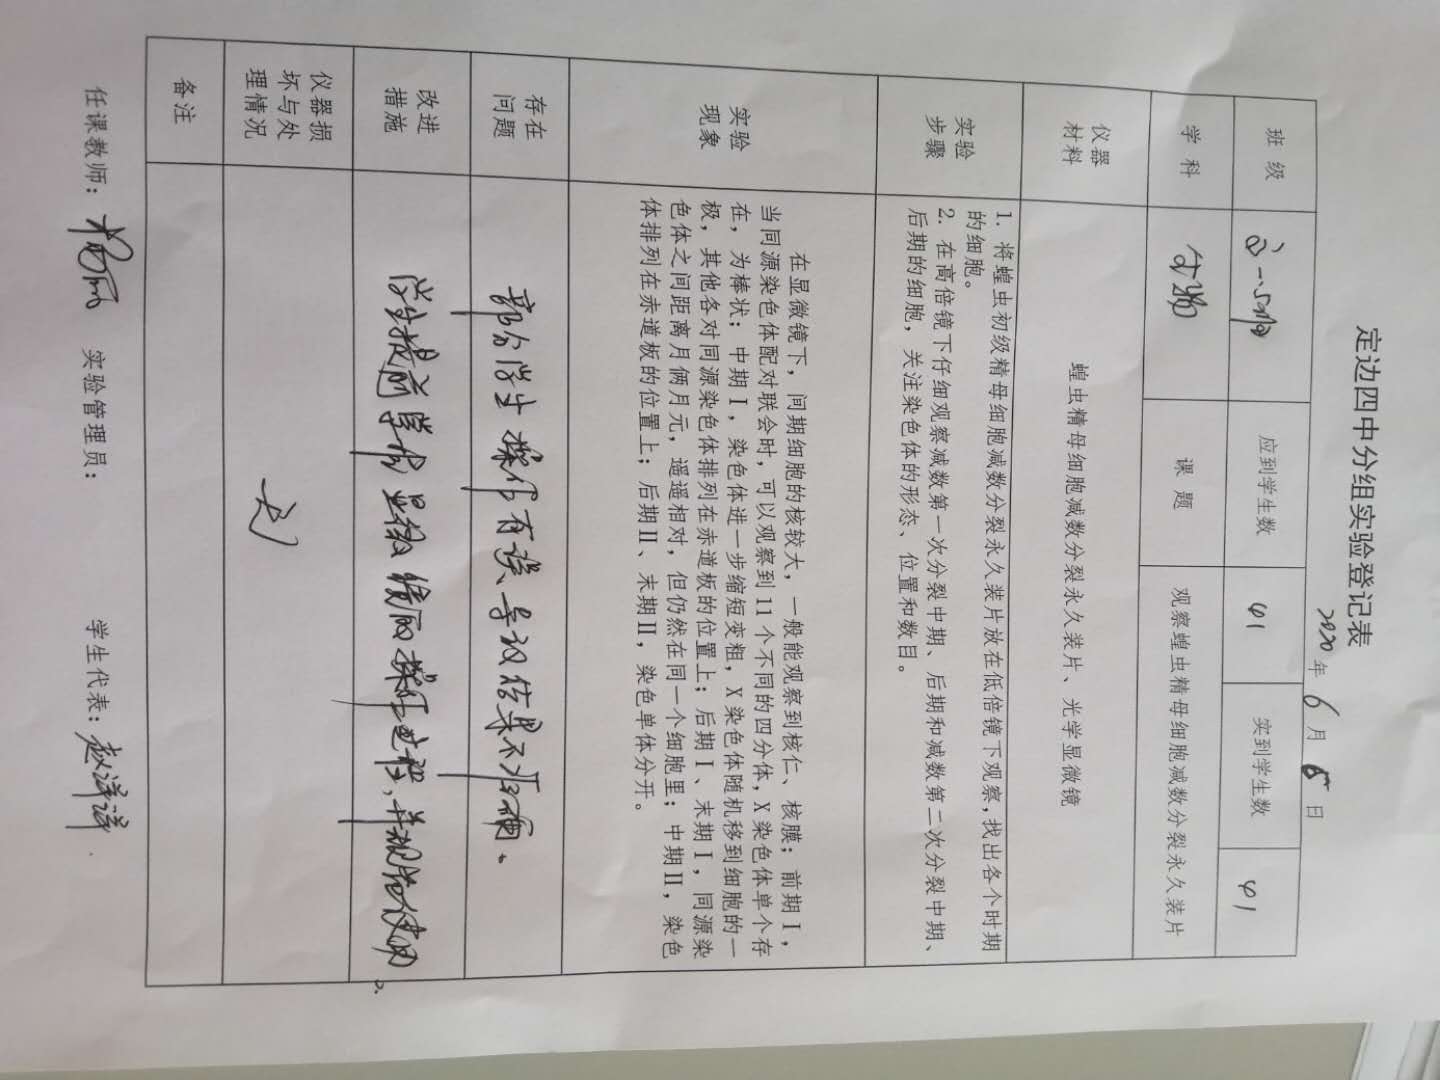 定边四中分组实验登记表
2020年6月8日
班级 高一、5班 应到学生数 41 实到学生数 41
学科 生物 课题 观察蝗虫精母细胞减数分裂永久装片
仪器
材料
蝗虫精母细胞减数分裂永久装片、光学显微镜
实验
步骤
1. 将蝗虫初级精母细胞减数分裂永久装片放在低倍镜下观察,找出各个时期
的细胞。
2. 在高倍镜下仔细观察减数第一次分裂中期、后期和减数第二次分裂中期、
后期的细胞，关注染色体的形态、位置和数目。
实验
现象
在显微镜下，间期细胞的核较大，一般能观察到核仁、核膜；前期Ⅰ，
当同源染色体配对联会时，可以观察到11个不同的四分体，X染色体单个存
在，为棒状；中期Ⅰ，染色体进一步缩短变粗，X染色体随机移到细胞的一
极，其他各对同源染色体排列在赤道板的位置上；后期Ⅰ、末期Ⅰ，同源染
色体之间距离月俩月元，遥遥相对，但仍然在同一个细胞里；中期Ⅱ，染色
体排列在赤道板的位置上；后期Ⅱ、末期Ⅱ，染色单体分开。
存在
问题
部分学生操作有误、导致结果不准确。
改进
措施
学生提前学习显微镜的操作过程，并规范使用。
仪器损
坏与处
理情况
无
备注
任课教师：杨丽 实验管理员： 学生代表：赵洋洋